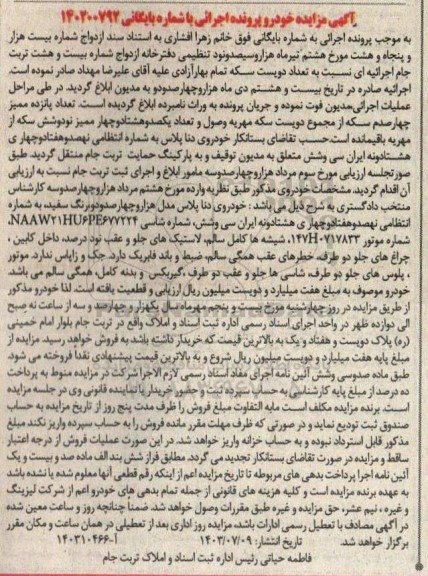 آگهی مزایده خودرو پرونده اجرائی با شماره بایگانی ۱۴۰۲۰۰۷۹۲
به موجب پرونده اجرائی به شماره بایگانی فوق خانم زهرا افشاری به استناد سند ازدواج شماره بیست هزار
و پنجاه و هشت مورخ هشتم تیرماه هزاروسیصدونود تنظیمی دفترخانه ازدواج شماره بیست و هشت تربت
جام اجرائیه ای نسبت به تعداد دویست سکه تمام بهارآزادی علیه آقای علیرضا مهداد صادر نموده است.
اجرائیه صادره در تاریخ بیست و هشتم دی ماه هزاروچهارصدودو به مدیون ابلاغ گردید. در طی مراحل
عملیات اجرائی مدیون فوت نموده و جریان پرونده به وراث نامبرده ابلاغ گردیده است. تعداد پانزده ممیز
چهارصدم سکه از مجموع دویست سکه مهریه وصول و تعداد یکصدوهشتادوچهار ممیز نودوشش سکه از
مهریه باقیمانده است. حسب تقاضای بستانکار خودروی دنا پلاس به شماره انتظامی نهصدوهفتادوچهار ی
هشتادونه ایران سی وشش متعلق به مدیون توقیف و به پارکینگ حمایت تربت جام منتقل گردید. طبق
صورتجلسه ارزیابی مورخ سوم مرداد هزاروچهارصدوسه مامور ابلاغ و اجرای ثبت تربت جام نسبت به ارزیابی
آن اقدام گردید. مشخصات خودروی مذکور طبق نظریه وارده مورخ هشتم مرداد هزاروچهارصدوسه کارشناس
منتخب دادگستری به شرح ذیل می باشد: خودروی دنا پلاس مدل هزاروچهارصدودو رنگ سفید، به شماره
انتظامی نهصدوهفتادوچهار ی هشتادونه ایران سی وشش، شماره شاسی NAAW21HU6PE677224،
شماره موتور 147H0717833، شیشه ها کامل سالم، لاستیک های جلو و عقب نود درصد، داخل کابین،
چراغ های جلو دو طرف، خطرهای عقب همگی سالم، ضبط و باند فابریک دارد. جک و زاپاس ندارد. موتور
، پلوس های جلو دو طرف، شاسی ها جلو و عقب دو طرف، گیربکس و بدنه کامل، همگی سالم می باشد.
خودرو موصوف به مبلغ هفت میلیارد و دویست میلیون ریال ارزیابی و قطعیت یافته است. لذا خودرو مذکور
از طریق مزایده در روز چهارشنبه مورخ بیست و پنجم مهرماه سال یکهزار و چهارصد و سه از ساعت نه صبح
الی دوازده ظهر در واحد اجرای اسناد رسمی اداره ثبت اسناد و املاک واقع در تربت جام بلوار امام خمینی
(ره) پلاک دویست و هفتاد و یک به بالاترین قیمت که خریدار داشته باشد به فروش خواهد رسید. مزایده از
مبلغ پایه هفت میلیارد و دویست میلیون ریال شروع و به بالاترین قیمت پیشنهادی نقدا فروخته می شود.
طبق ماده صدوسی وشش آئین نامه اجرای مفاد اسناد رسمی لازم الاجرا شرکت در مزایده منوط به پرداخت
ده درصد از مبلغ پایه کارشناسی به حساب سپرده ثبت و حضور خریدار یا نماینده قانونی وی در جلسه مزایده
است. برنده مزایده مکلف است مابه التفاوت مبلغ فروش را ظرف مدت پنج روز از تاریخ مزایده به حساب
صندوق ثبت تودیع نماید و در صورتی که ظرف مهلت مقرر مانده فروش را به حساب سپرده واریز نکند مبلغ
مذکور قابل استرداد نبوده و به حساب خزانه واریز خواهد شد. در این صورت عملیات فروش از درجه اعتبار
ساقط و مزایده در صورت تقاضای بستانکار تجدید می گردد. مطابق فراز شش بند الف ماده صد و بیست و یک
آئین نامه اجرا پرداخت بدهی های مربوطه تا تاریخ مزایده اعم از اینکه رقم قطعی آنها معلوم شده یا نشده باشد
به عهده برنده مزایده است و کلیه هزینه های قانونی از جمله تمام بدهی های خودرو اعم از شرکت لیزینگ
و غیره، نیم عشر، حق مزایده و غیره طبق مقررات وصول خواهد شد. ضمناً چنانچه روز و ساعت معین شده
در آگهی مصادف با تعطیل رسمی ادارات باشد، مزایده روز اداری بعد از تعطیلی در همان ساعت و مکان مقرر
برگزار خواهد شد. تاریخ انتشار: ۱۴۰۳/۰۷/۰۹ آ-۱۴۰۳۱۰۴۶۶
فاطمه حیاتی رئیس اداره ثبت اسناد و املاک تربت جام